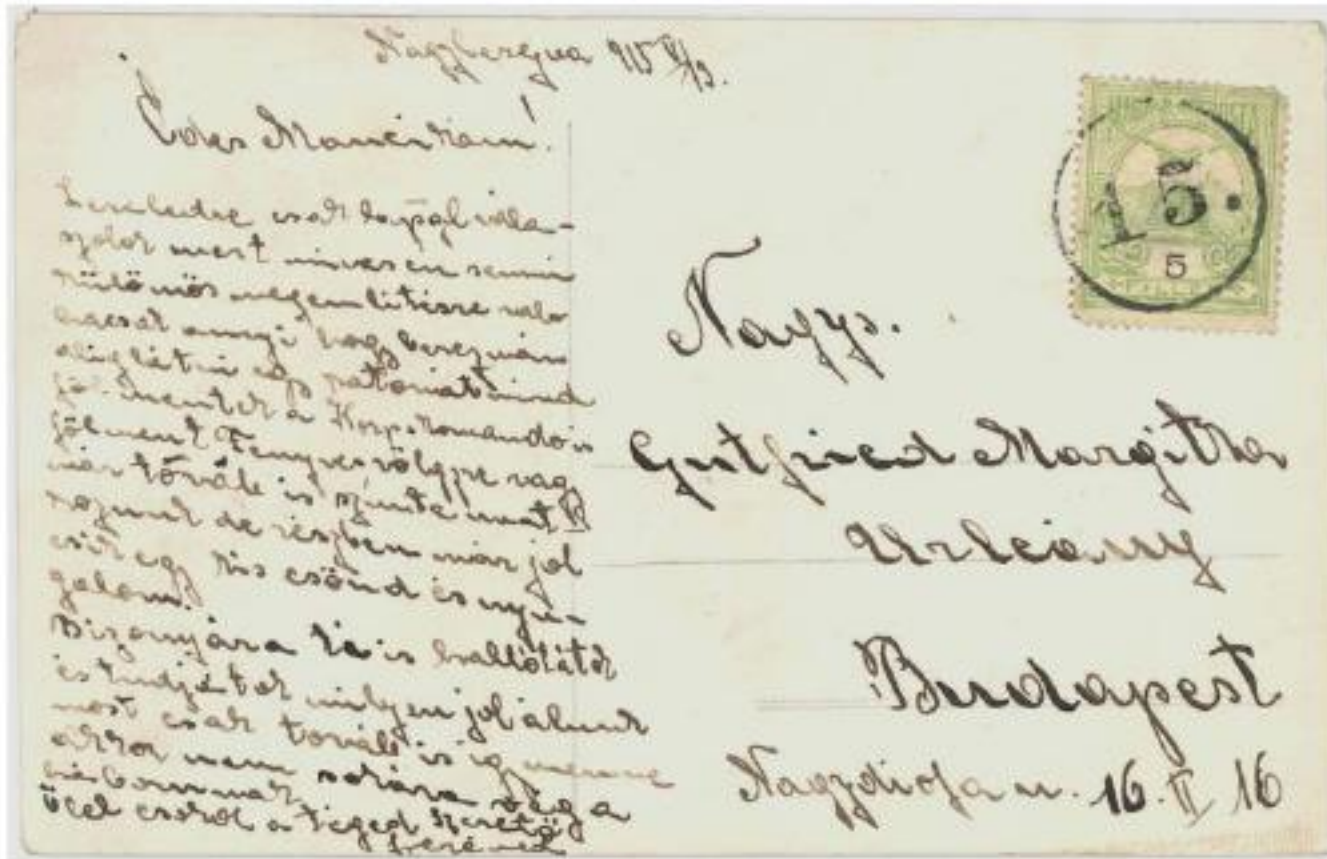 Nagyberezna 915 V/13.
Édes Mancikám!
csak lappal vála-
szolok mert nincsen semmi
különös megemlitésre való
hacsak annyi hogy bereznán
aliglátni egy katonát mind
föl mentek a Korpskomandó is
fölment Fenyvesvölgyre vagy
már tovább is szinte
de részben már jól
esik egy kis csönd és nyu-
galom.
Bizonyára ti is hallottátok
és tudjátok milyen jól álunk
most csak tovább is igy menne
akkor nem sokára vég a
háborunak
ölel csókol a téged szerető
Ferencz
15.
5
Nagys.
Gutfried Margitka
Urleány
Budapest
Nagydiofa u. 16. II 16